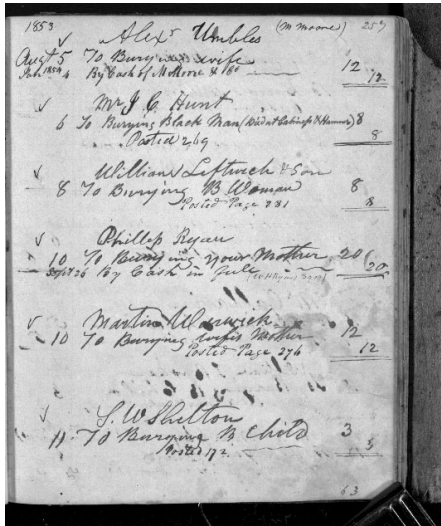 1853 Alexr Umbles (M Moore) 257
Augt 5 To Burying wife 12
Jan 1854 4 By Cash of M Moore & Co 12
Mr J C Hunt
6 To Burying Black Man (Died at Cabiness & Hamner) 8
Posted 269 8
William Leftwich & Son
8 To Burying B Woman 8
Posted Page 281 8
Phillip Ryan
10 To Burying your Mother 20
Sept 26 By Cash in full 20
Martin Warwick
10 To Burying wifes Mother 12
Posted Page 276 12
S. W Shelton
11 To Burying B Child 3
Posted 172 3
63